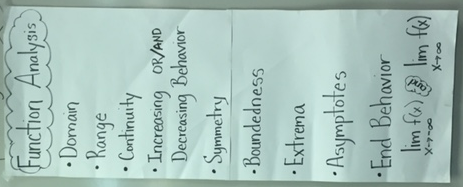 Function Analysis
• Domain
• Range
• Continuity
• Increasing OR/AND
Decreasing Behavior
• Symmetry
• Boundedness
• Extrema
• Asymptotes
• End Behavior
lim f(x) lim f(x)
x→-∞ x→∞